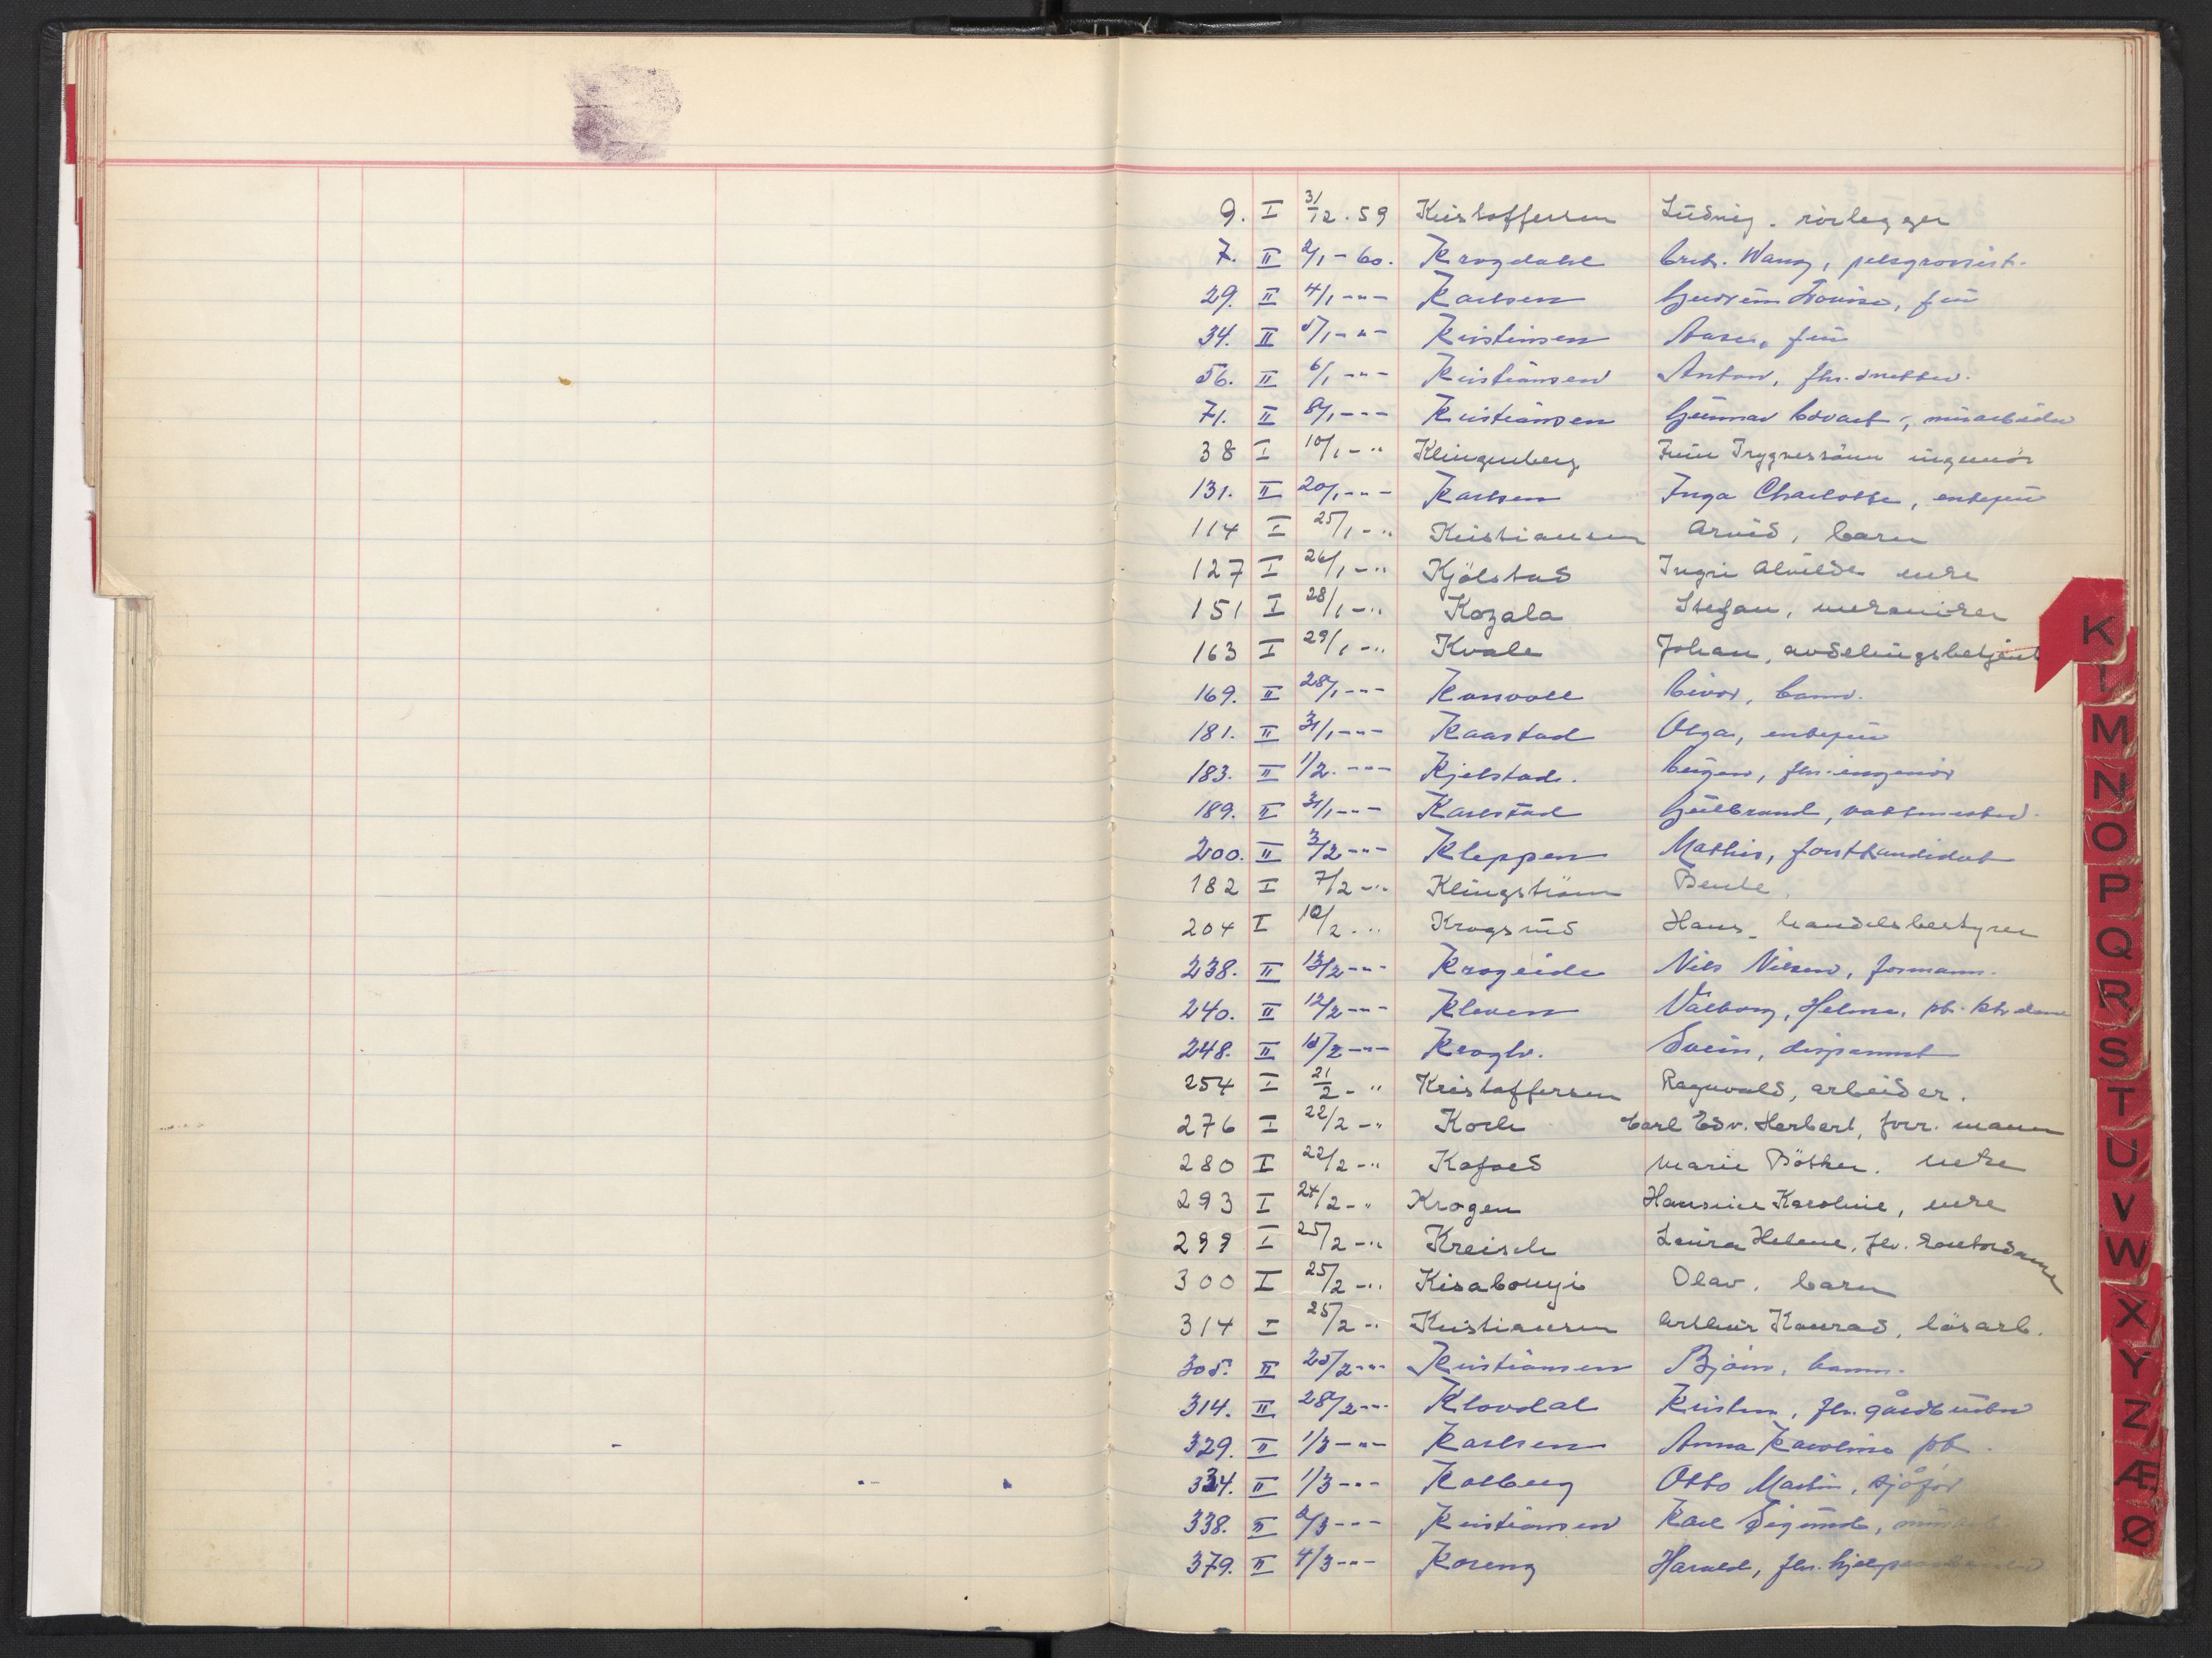 9. I 31/12.59 Kristoffersen Ludvig. rörlegger
7. II 2/1-60. Krogdahl Wang, pelsgrossist.
29. II 4/1-"- Karlsen Gudrun Lovise, fru
34. II 5/1-"- Kristinsen Aase, fru
56. II 6/1-"- Kristiansen Anton, fhv.
71. II 8/1-"- Kristiansen Gunnar Edvart, murarbeider
38 I 10/1-" Klingenberg Trygvessönn ingeniör
131. II 20/1-"- Karlsen Inga Charlotte, enkefru
114 I 25/1-" Kristiansen Arvid, barn
127 I 26/1-" Kjölstad Ingri Alvilde enke
151 I 28/1-" Kozala Stefan, mekaniker
163 I 29/1-" Kvale Johan, avdelingsbetjent
169. II 28/1-"- Eivor, barn.
181. II 31/1-"- Kaastad Olga, enkefru
183. II 1/2.-"- Kjelstad. Eugen, fhv. ingeniör
189. II 31/1-"- Karlstad Gulbrand, vaktmester.
200. II 3/2-"- Kleppen Mathis, forstkandidat
182 I 7/2-" Klingström Bente,
204 I 10/2." Krogsrud Hans, handelsbestyrer
238. II 13/2-"- Krogeide Nils Nilsen, formann.
240. II 12/2-"- Kleven Valborg, Helene, pb.
248. II 15/2-"- Krogh. Svein, disponent
254 I 21/2-" Kristoffersen Ragnvald, arbeider.
276 I 22/2-" Koch Carl Edv. Herbert, forr. mann
280 I 22/2-" Kofoed Marie Böthker. enke
293 I 24/2-" Krogen Hansine Karoline, enke
299 I 25/2-" Kreisch Laura Helene, fhv. kontordame
300 I 25/2-" Kisabonyi Olav, barn
314 I 25/2-" Kristiansen Arthur Konrad, lösarb.
305. II 25/2-"- Kristiansen Björn, barn.
314. II 28/2-"- Klovdal Kristen, fhv. gårdbruker
329. II 1/3-"- Karlsen Anna Karoline pb.
334. II 1/3-"- Kolberg Otto Martin, sjåför
338. II 2/3-"- Kristiansen Karl Sigurd,
379. II 4/3-"- Koreng Harald, fhv.
K
L
M
N
O
P
Q
R
S
T
U
V
W
X
Y
Z
Æ
Ø